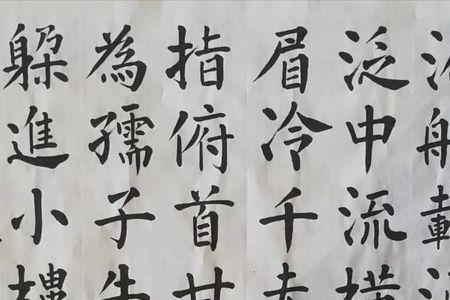 泛中流橫
眉冷千夫
指俯首甘
為孺子牛
躲進小樓